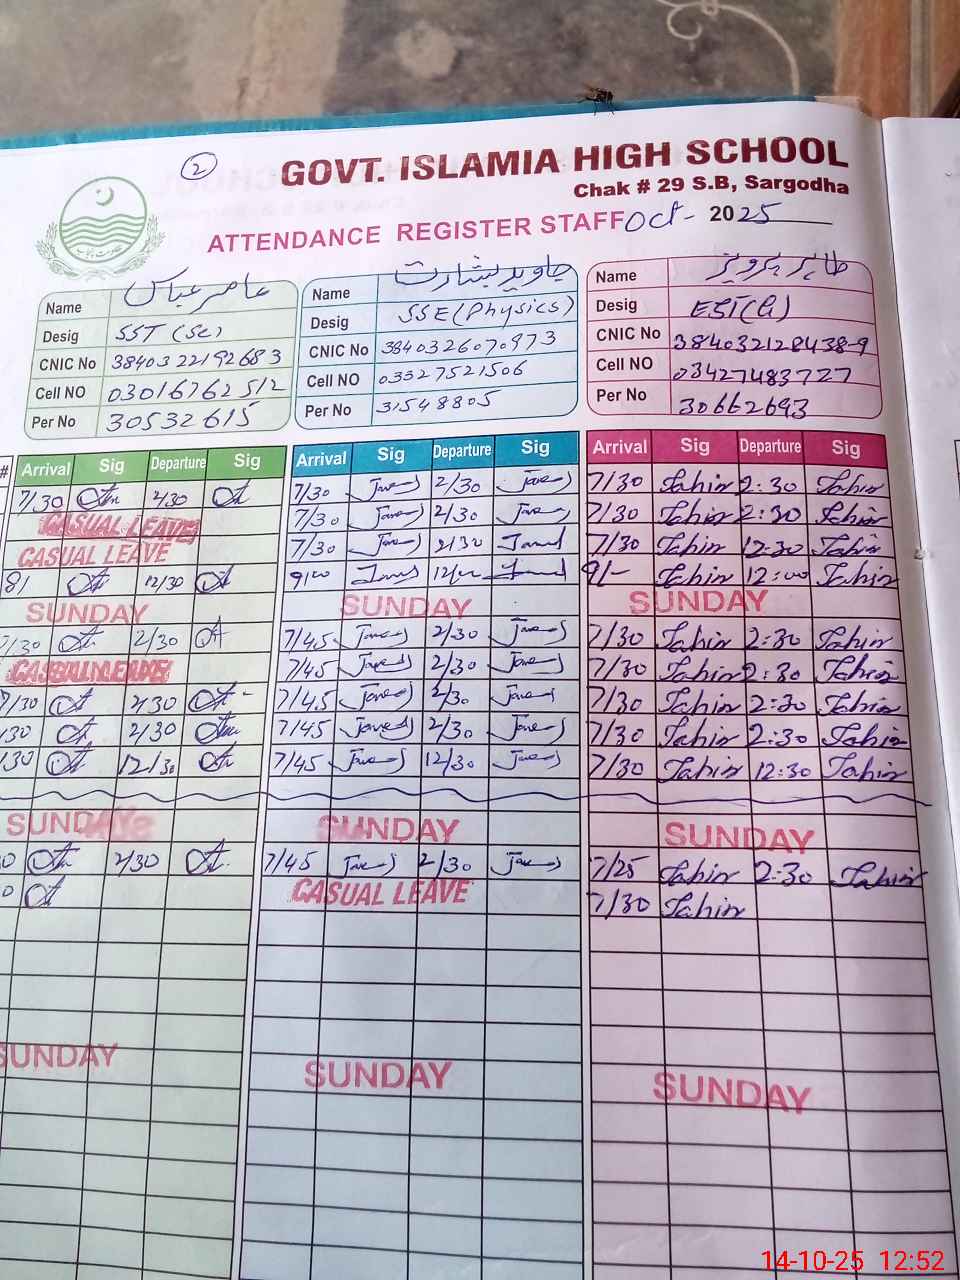 2
GOVT. ISLAMIA HIGH SCHOOL
Chak # 29 S.B, Sargodha
ATTENDANCE REGISTER STAFF Oct - 2025
Name عاصر عباس
Desig SST (Sc)
CNIC No 3840322192683
Cell NO 03016762512
Per No 30532615
Name جاوید بشارت
Desig SSE (Physics)
CNIC NO 3840326070973
Cell NO 03327521506
Per No 31548805
Name طاہر پرویز
Desig EST (G)
CNIC No 384032128438-9
Cell NO 03427483727
Per No 30662693
# Arrival Sig Departure Sig Arrival Sig Departure Sig Arrival Sig Departure Sig
7/30 2/30 7/30 2/30 7/30 Tahir 2:30 Tahir
CASUAL LEAVE 7/30 2/30 7/30 Tahir 2:30 Tahir
CASUAL LEAVE 7/30 2/30 7/30 Tahir 12:30 Tahir
8/ 12/30 9/00 12/00 9/- Tahir 12:00 Tahir
SUNDAY SUNDAY SUNDAY
7/30 2/30 7/45 2/30 7/30 Tahir 2:30 Tahir
CASUAL LEAVE 7/45 2/30 7/30 Tahir 2:30 Tahir
7/30 2/30 7/45 2/30 7/30 Tahir 2:30 Tahir
/30 2/30 7/45 2/30 7/30 Tahir 2:30 Tahir
/30 12/30 7/45 12/30 7/30 Tahir 12:30 Tahir
SUNDAY SUNDAY SUNDAY
0 2/30 7/45 2/30 7/25 Tahir 2:30 Tahir
0 CASUAL LEAVE 7/30 Tahir
SUNDAY SUNDAY SUNDAY
14-10-25 12:52